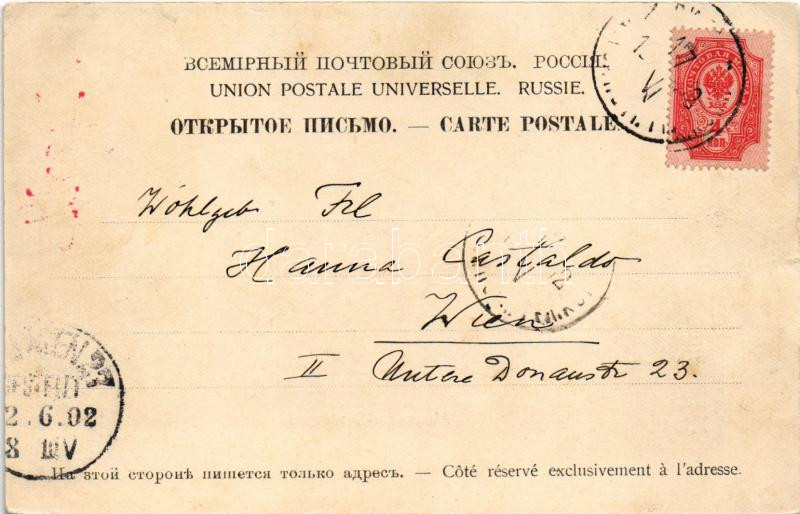 ВСЕМІРНЫЙ ПОЧТОВЫЙ СОЮЗЪ. РОССІЯ.
UNION POSTALE UNIVERSELLE. RUSSIE.
ОТКРЫТОЕ ПИСЬМО. — CARTE POSTALE.
Wohlgeb Frl
Hanna Castaldo
Wien
II Untere Donaustr 23.
darabanth
2.6.02
8 V
На этой сторонѣ пишется только адресъ. — Côté réservé exclusivement à l'adresse.